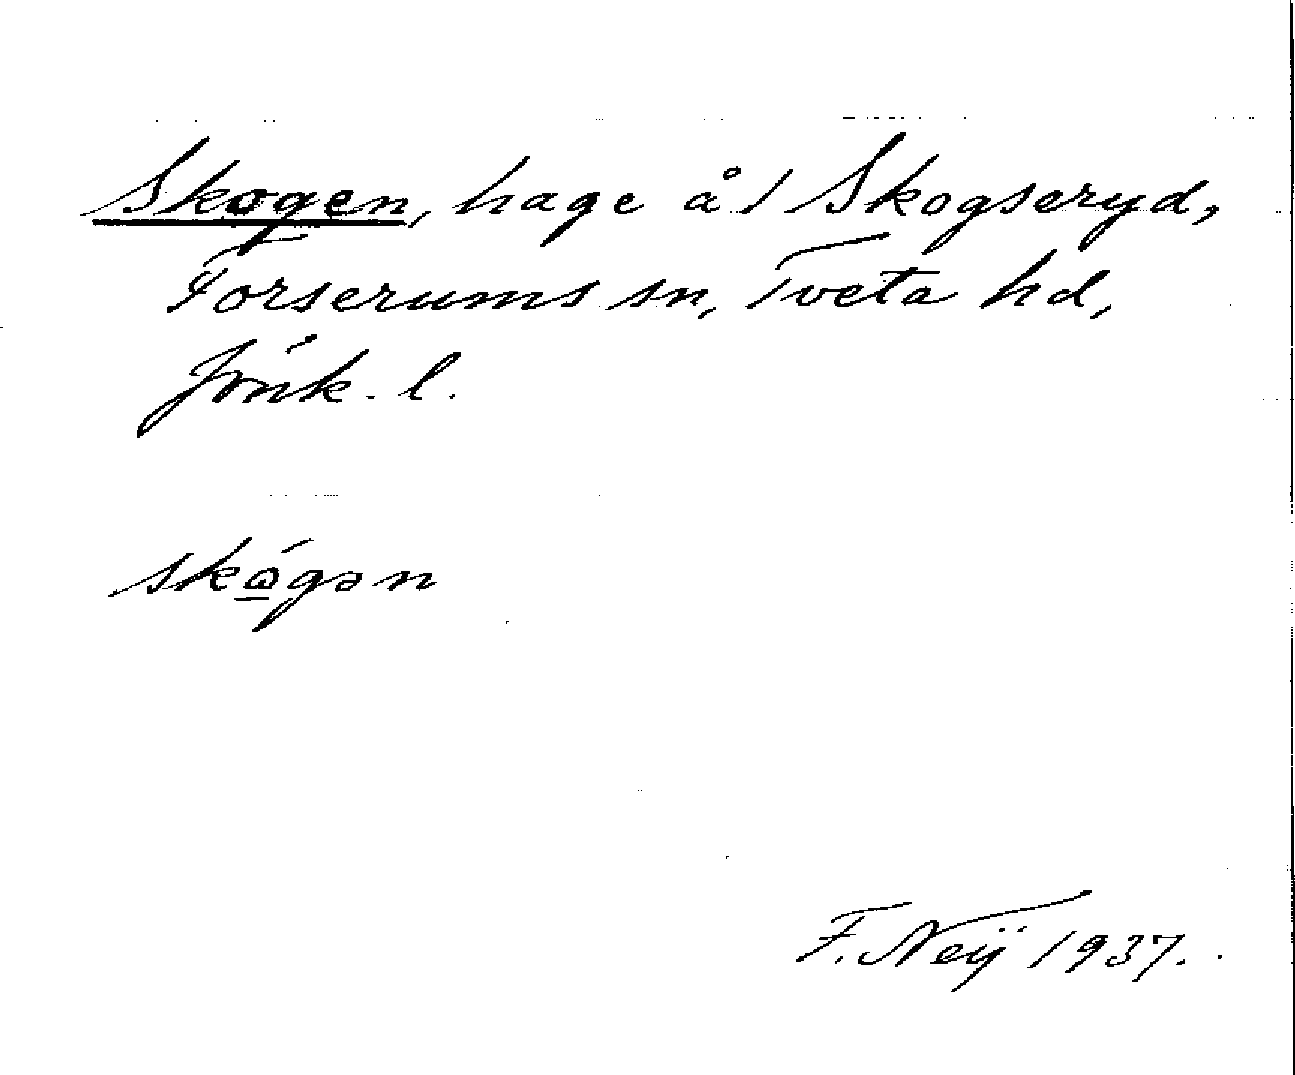 Skogen, hage å 1 Skogseryd,
Forserums sn, Tveta hd,
Jönk. l.
skó̱gən
F. Neij 1937.